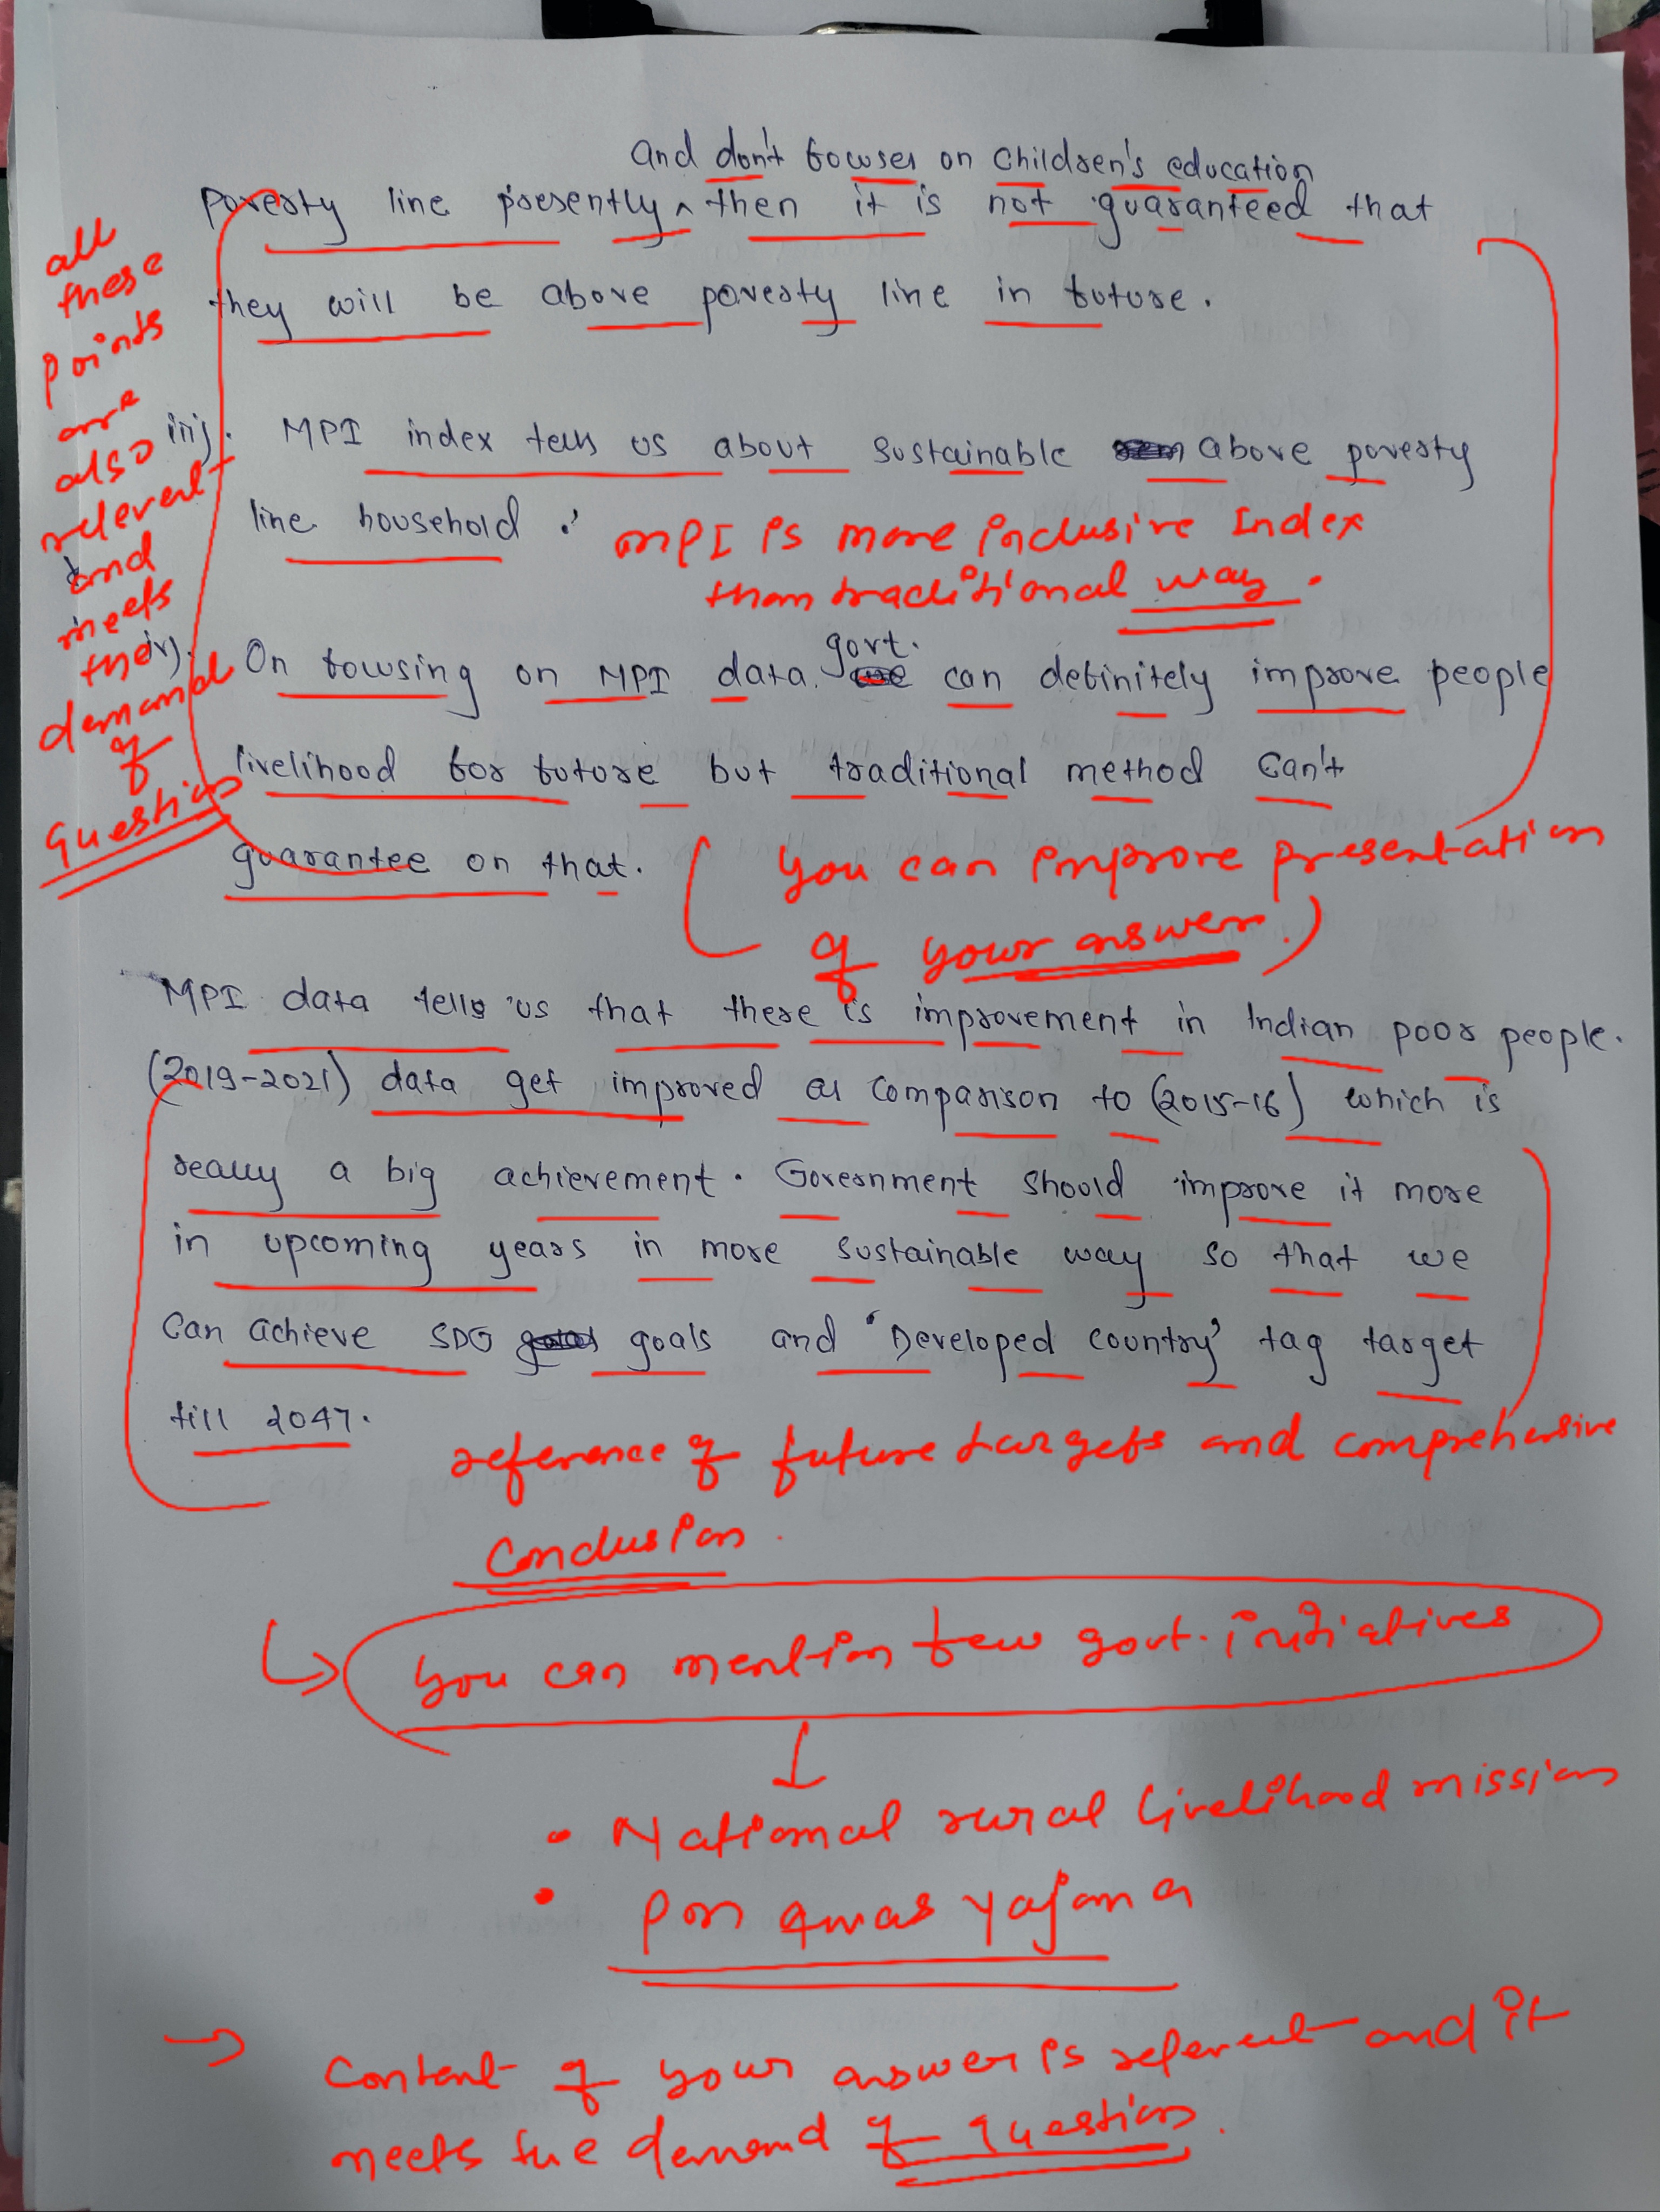 and don't focuses on children's education
poverty line presently ^ then it is not guaranteed that
they will be above poverty line in future.
all
these
points
are
also
relevent
and
meets
the
demand
of
Question
iii). MPI index tells us about sustainable above poverty
line household.
MPI is more inclusive Index
than traditional way.
iv). On fowsing on MPI data govt. can definitely improve people
livelihood for future but traditional method can't
guarantee on that.
(You can improve presentation
of your answer.)
MPI data tells us that there is improvement in Indian poor people.
(2019-2021) data get improved as comparison to (2015-16) which is
really a big achievement. Government should improve it more
in upcoming years in more sustainable way so that we
can achieve SDG goals and 'Developed country' tag target
till 2047.
reference of future targets and comprehensive
Conclusion.
You can mention few govt. initiatives
• National rural livelihood mission
• Pm awas yajana
→ Content of your answer is relevent and it
meets the demand of question.